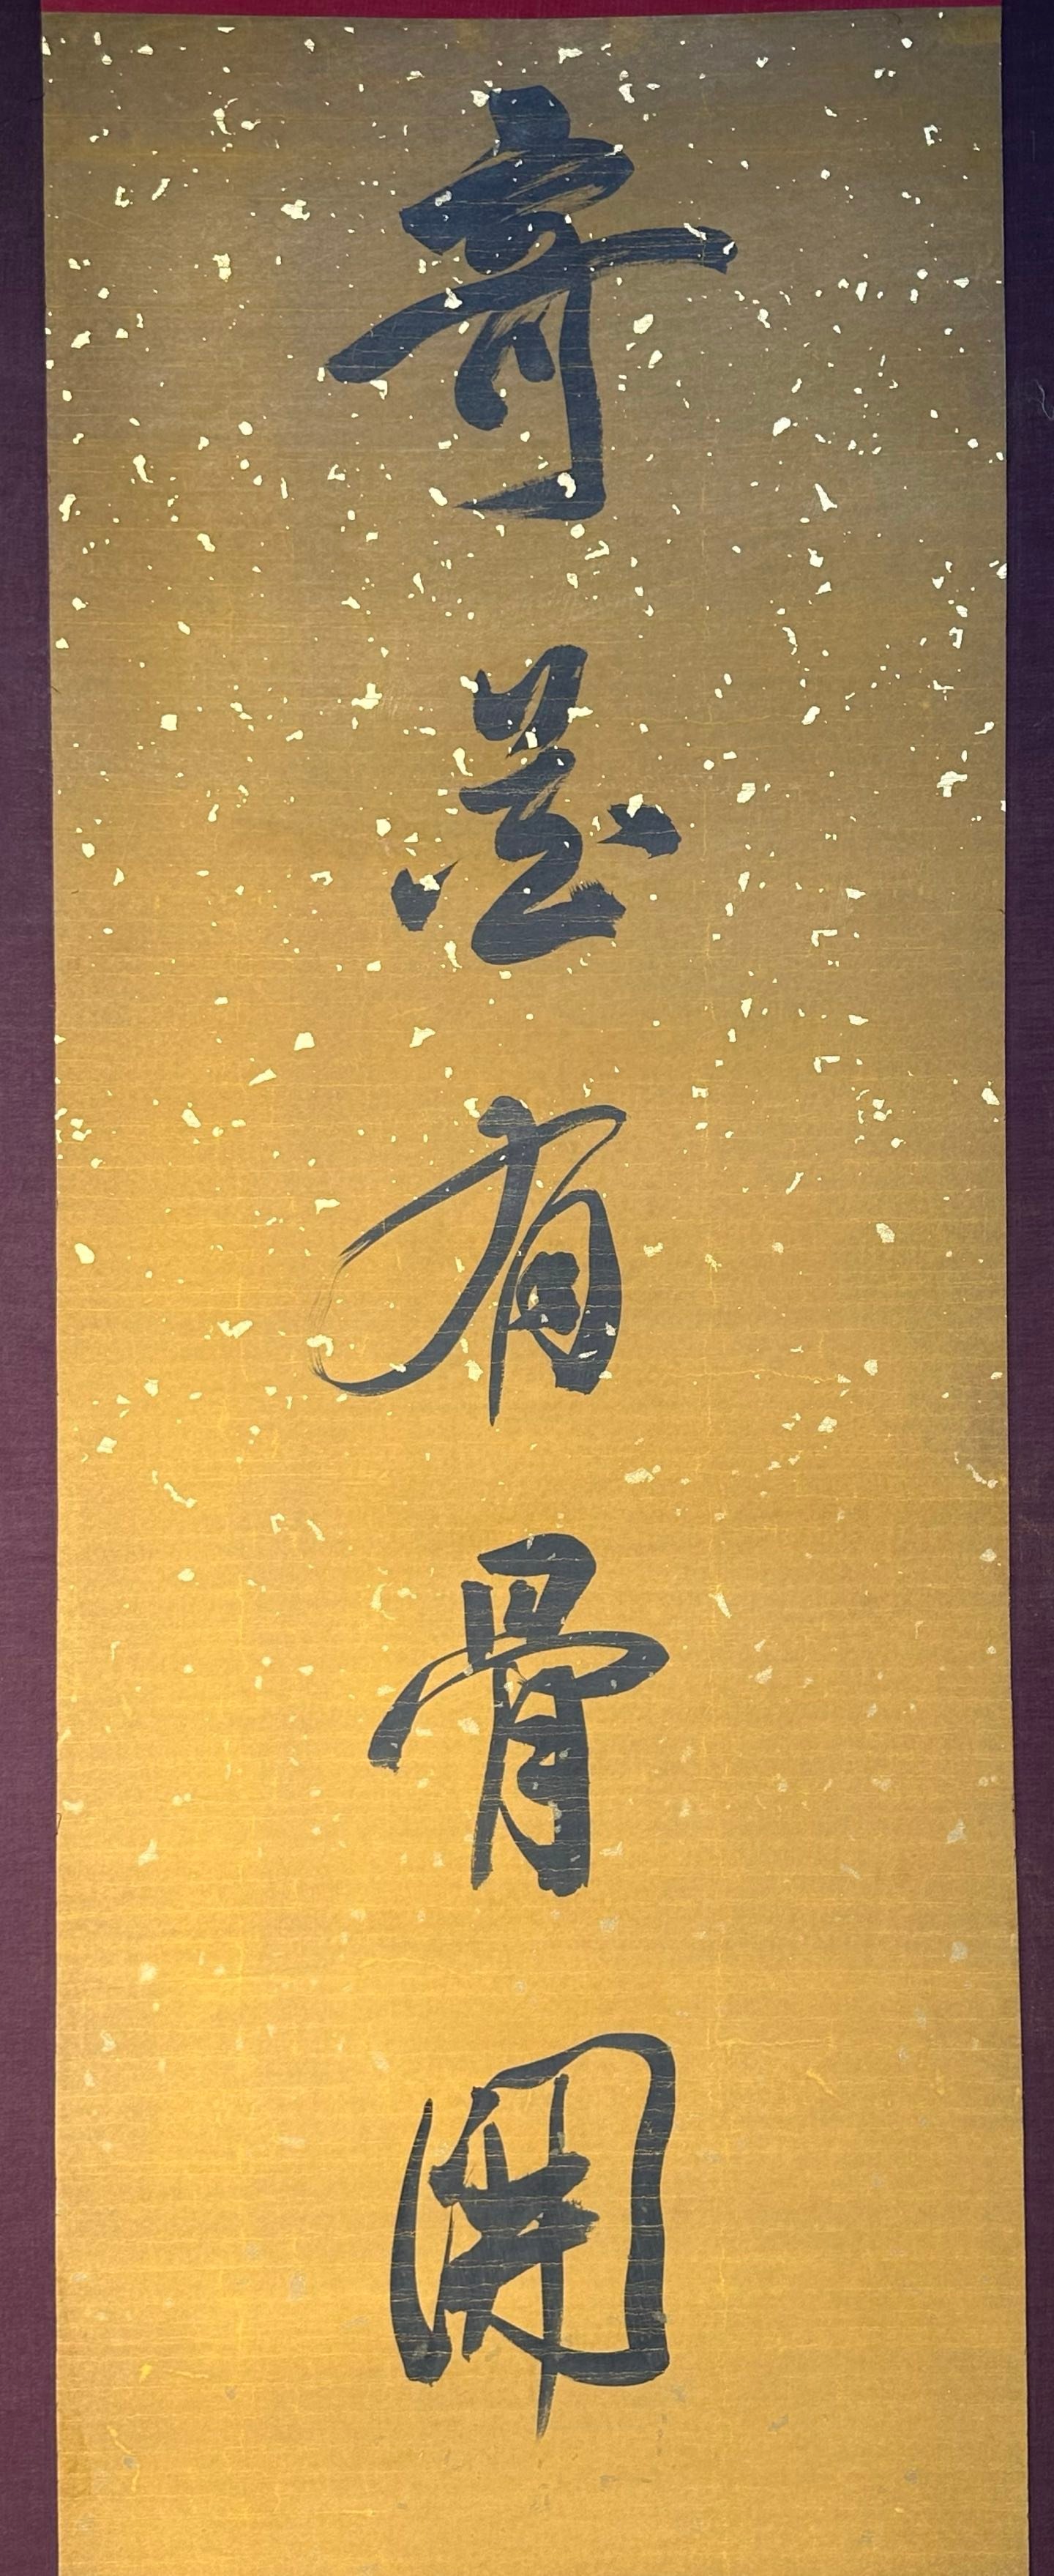 奇有骨開